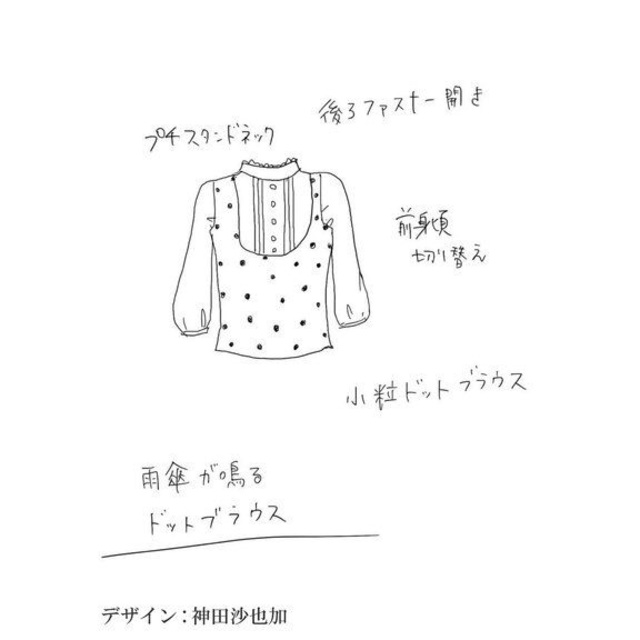 後ろファスナー開き
プチスタンドネック
前身頃
切り替え
小粒ドットブラウス
雨傘が鳴る
ドットブラウス
デザイン：神田沙也加